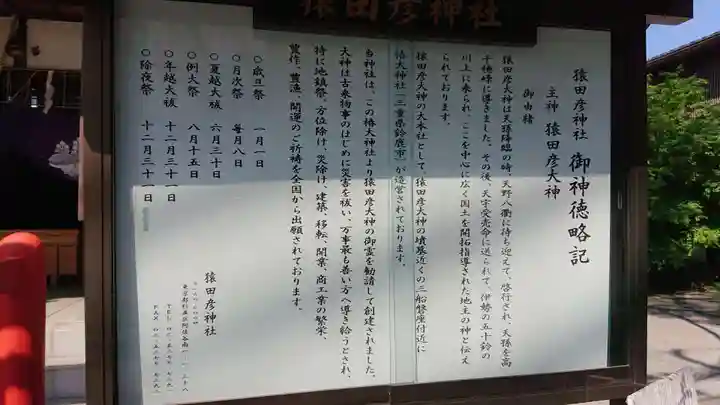 猿田彦神社
猿田彦神社 御神徳略記
主神 猿田彦大神
御由緒
猿田彦大神は天孫降臨の時、天野八衢に待ち迎えて、啓行され、天孫を高
千穂峰に導きました。その後、天宇受売命に送られて、伊勢の五十鈴の
川上に来られ、ここを中心に広く国土を開拓指導された地主の神と伝え
られております。
猿田彦大神の大本社として、猿田彦大神の墳墓近くの三船磐座付近に
椿大神社(三重県鈴鹿市)が造営されております。
当神社は、この椿大神社より猿田彦大神の御霊を勧請して創建されました。
大神は古来物事のはじめに災害を祓い、万事最も善い方へ導き給うとされ、
特に地鎮祭、方位除け、災除け、建築、移転、開業、商工業の繁栄、
豊作、豊漁、開運のご祈祷を全国から出願されております。
〇歳旦祭 一月一日
〇月次祭 毎月八日
〇夏越大祓 六月三十日
〇例大祭 八月十五日
〇年越大祓 十二月三十一日
〇除夜祭 十二月三十一日
猿田彦神社
東京都杉並区阿佐谷南一‐一‐三八
TEL
FAX